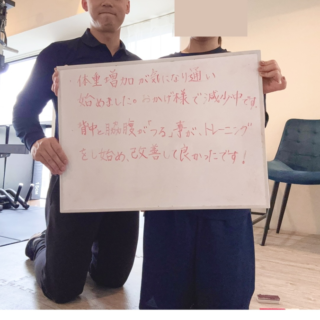 ・体重増加が気になり通い
始めました。おかげ様で減少中です。
背中と脇腹が「つる」事が、トレーニング
をし始め、改善して良かったです！